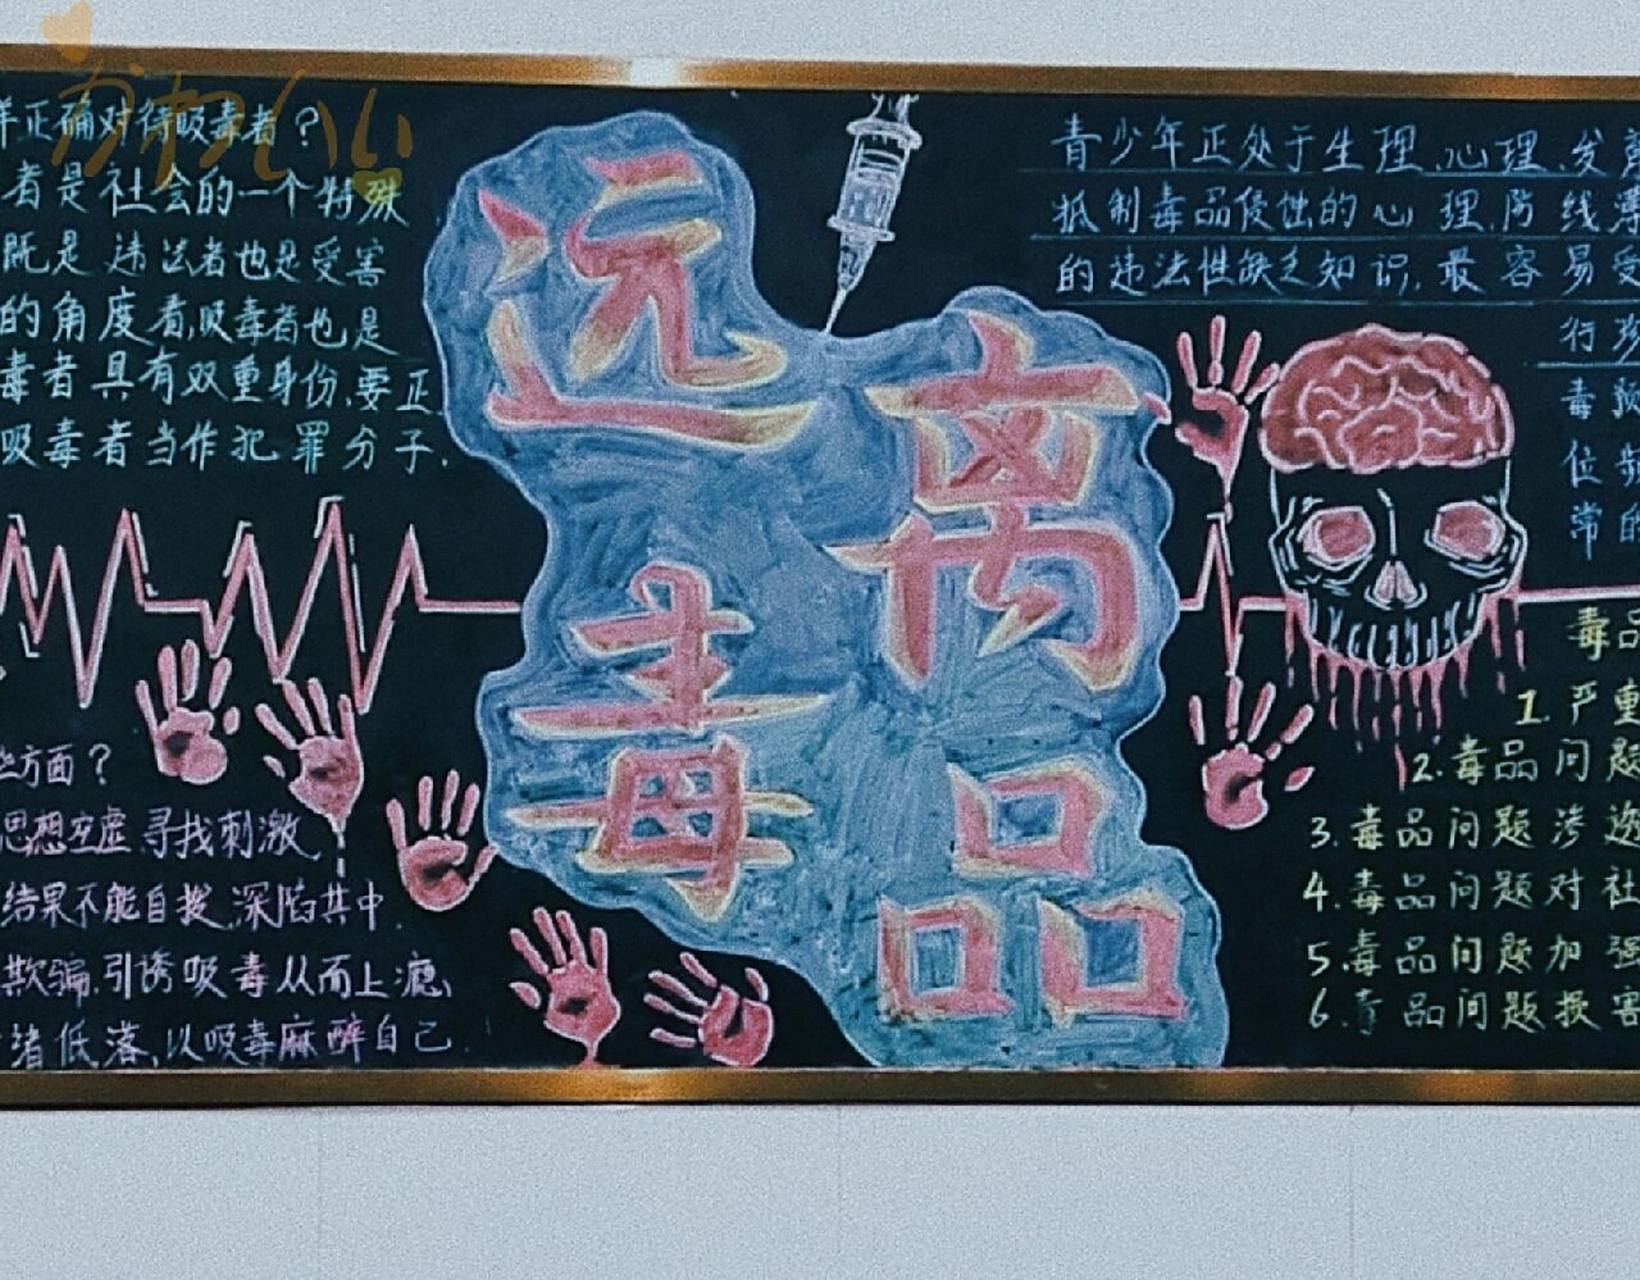 样正确对待吸毒者？
者是社会的一个特殊
既是违法者也是受害
的角度看,吸毒者也是
毒者具有双重身份,要正
吸毒者当作犯罪分子.
些方面？
思想空虚寻找刺激
结果不能自拔,深陷其中.
欺骗,引诱吸毒从而上瘾,
绪低落,以吸毒麻醉自己.
远离
毒品
青少年正处于生理、心理、发育
抵制毒品侵蚀的心理防线薄
的违法性缺乏知识,最容易受
行
毒
位
常的
毒品
1.严重
2.毒品问题
3.毒品问题渗透
4.毒品问题对社
5.毒品问题加强
6.毒品问题损害